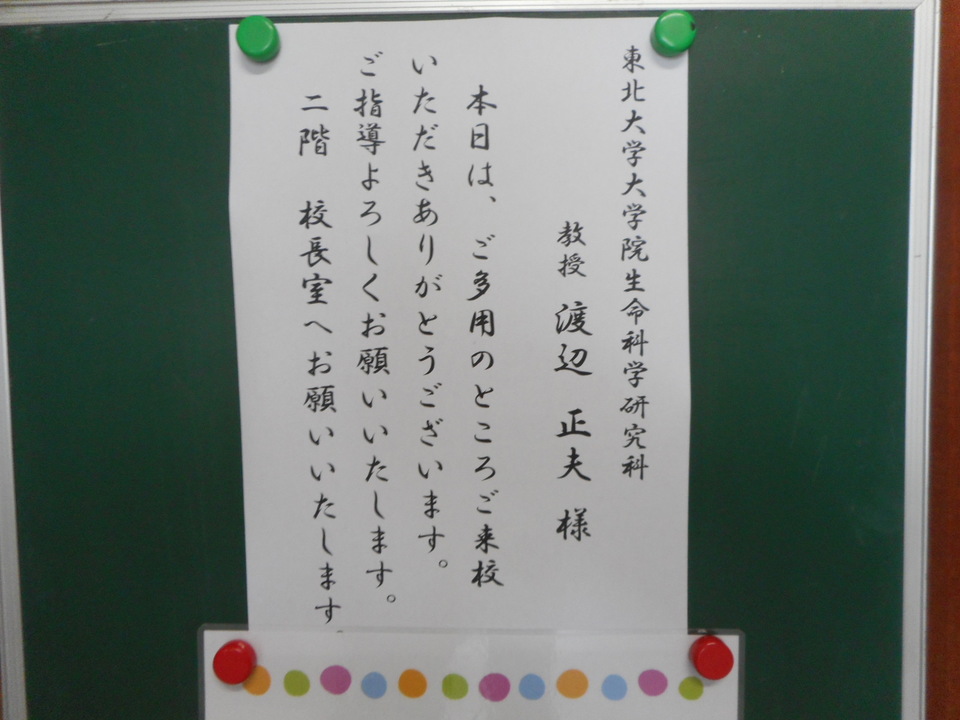 東北大学大学院生命科学研究科
教授 渡辺 正夫 様
本日は、ご多用のところご来校
いただきありがとうございます。
ご指導よろしくお願いいたします。
二階 校長室へお願いいたします